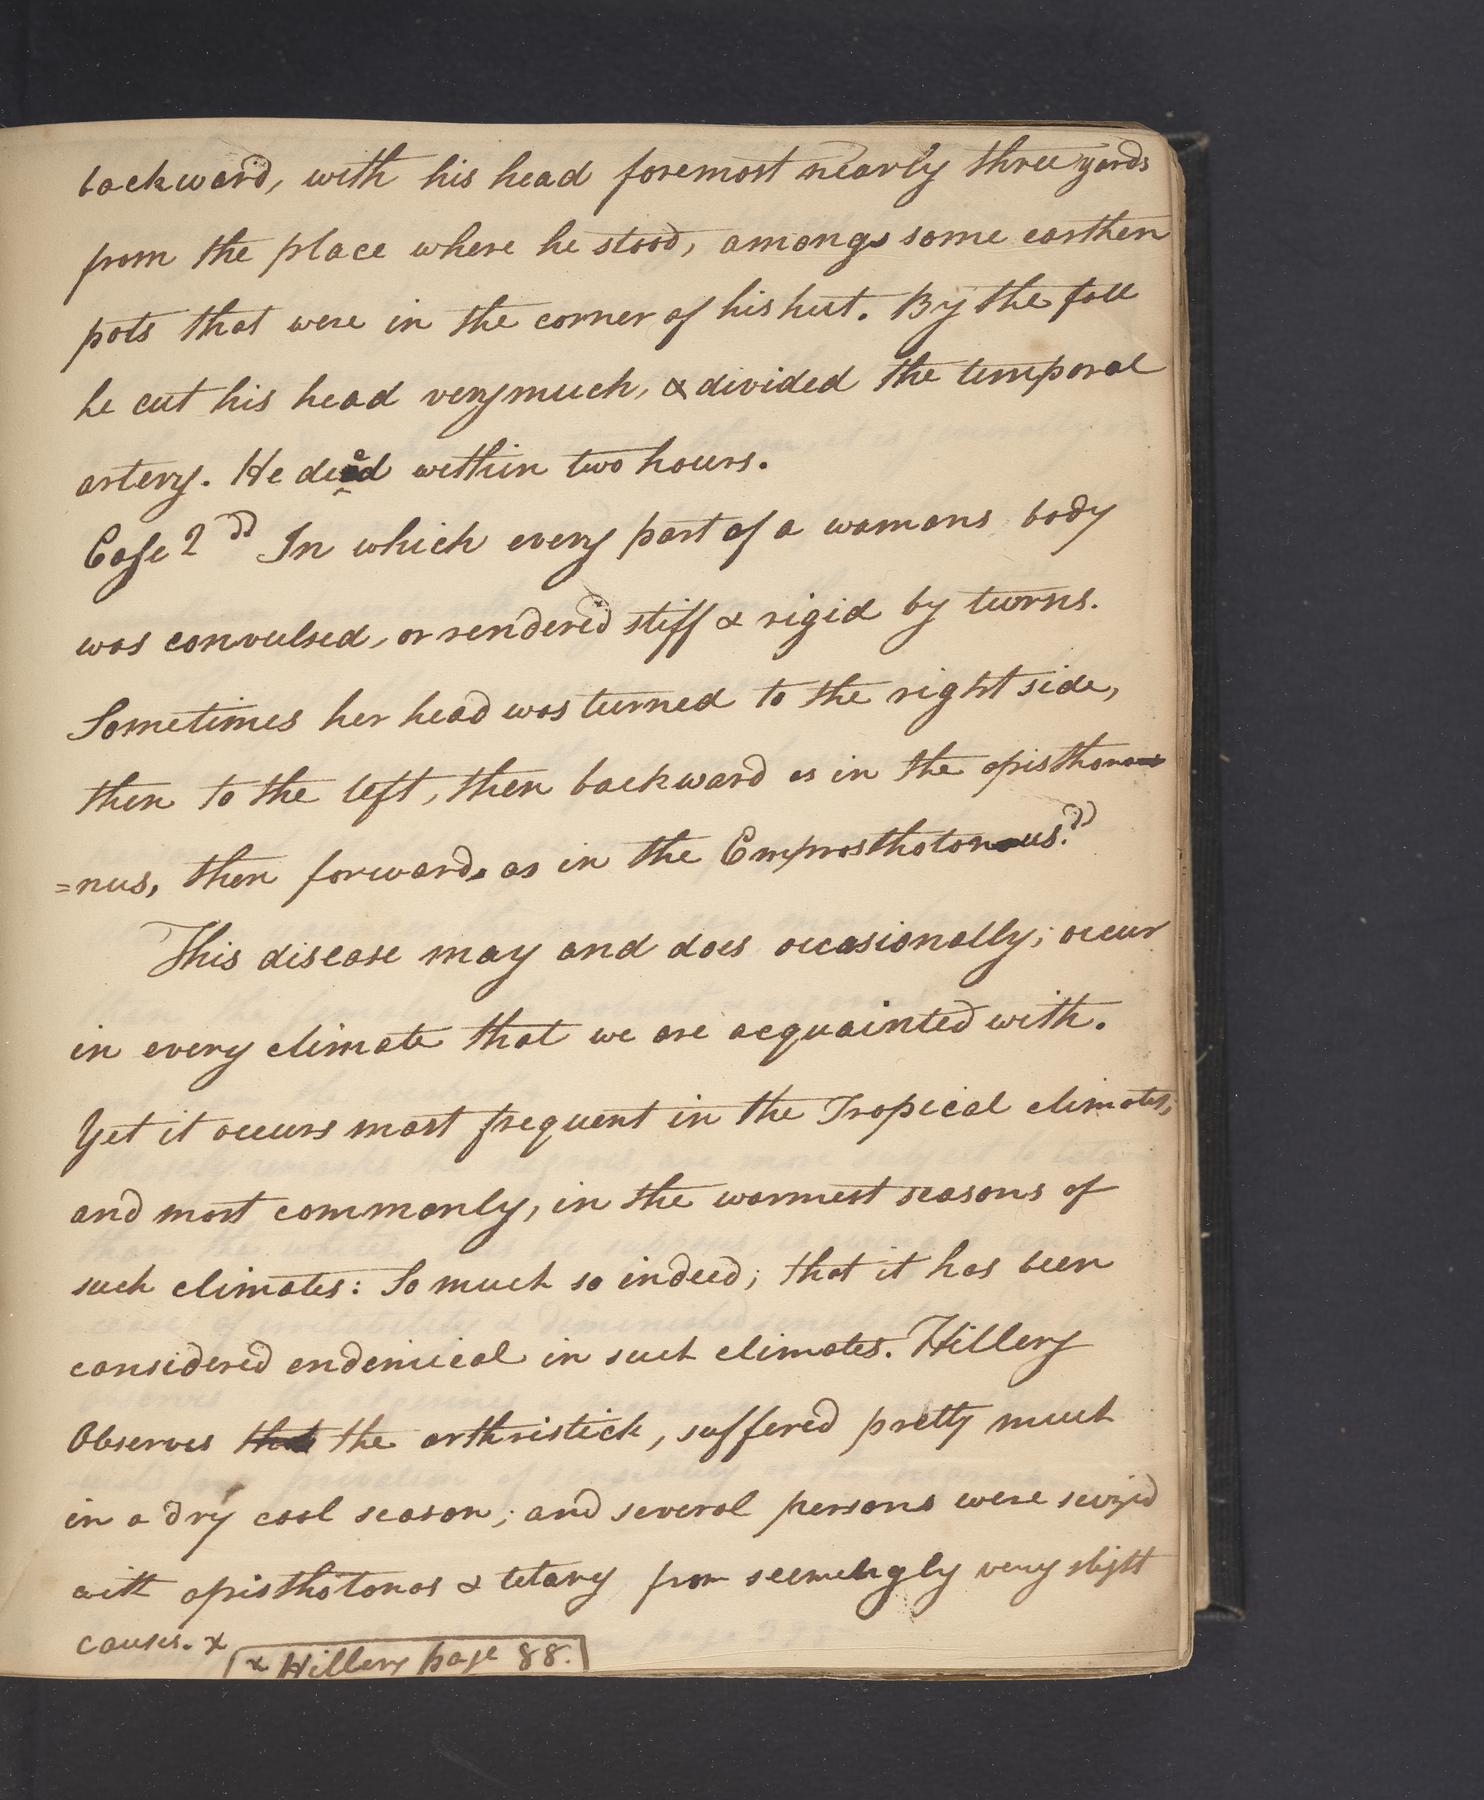 backward, with his head foremost nearly three yards
from the place where he stood, amongs some earthen
pots that were in the corner of his hut. By the fall
he cut his head very much, & divided the temporal
artery. He died within two hours.
Case 2dd In which every part of a womans body
was convulsed, or rendered stiff & rigid by turns.
Sometimes her head was turned to the right side,
then to the left, then backward as in the opisthono
=nus, then forward, as in the Emprosthotonus."
This disease may and does occasionally; occur
in every climate that we are acquainted with.
Yet it occurs most frequent in the Tropical climates;
and most commonly, in the warmest seasons of
such climates: So much so indeed; that it has been
considered endemical in such climates. Hillery
Observes that the arthristick, suffered pretty much
in a dry cool season; and several persons were seizid
with opisthotonos & tetany from seemingly very slight
causes. x
x Hillery page 88.